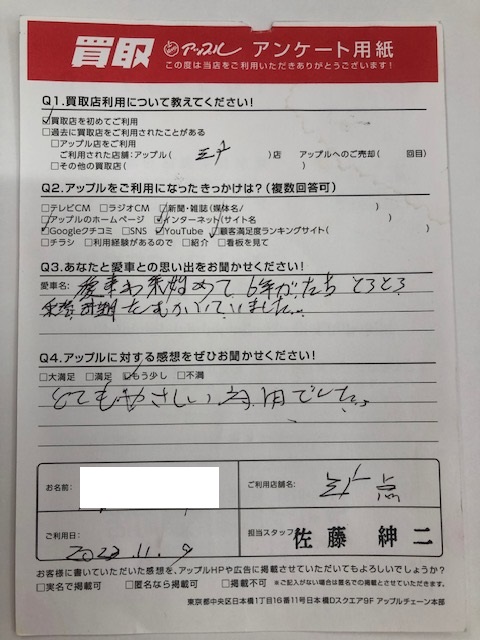 買取 アップル アンケート用紙
この度は当店をご利用いただきありがとうございます!
Q1.買取店利用について教えてください!
☑買取店を初めてご利用
□過去に買取店をご利用されたことがある
□アップル店をご利用
ご利用された店舗:アップル( )店 アップルへのご売却( 回目)
□その他の買取店( )
Q2.アップルをご利用になったきっかけは?(複数回答可)
□テレビCM □ラジオCM □新聞・雑誌(媒体名/ )
☑アップルのホームページ ☑インターネット(サイト名 )
☑Googleクチコミ □SNS ☑YouTube ☑顧客満足度ランキングサイト( )
□チラシ □利用経験があるので □紹介 □看板を見て
Q3.あなたと愛車との思い出をお聞かせください!
愛車名: 愛車わ乗始めて 6年がたち とろとろ
Q4.アップルに対する感想をぜひお聞かせください!
□大満足 □満足 ☑もう少し □不満
とてもやさしい対用でした。
お名前:
ご利用店舗名:
ご利用日: 11. 9
担当スタッフ 佐藤 紳二
お客様に書いていただいた感想を、アップルHPや広告に掲載させていただいてもよろしいでしょうか?
□実名で掲載可 □匿名なら掲載可 □掲載不可 ※ご記入がない場合は匿名での掲載とさせていただきます。
東京都中央区日本橋1丁目16番11号日本橋Dスクエア9F アップルチェーン本部